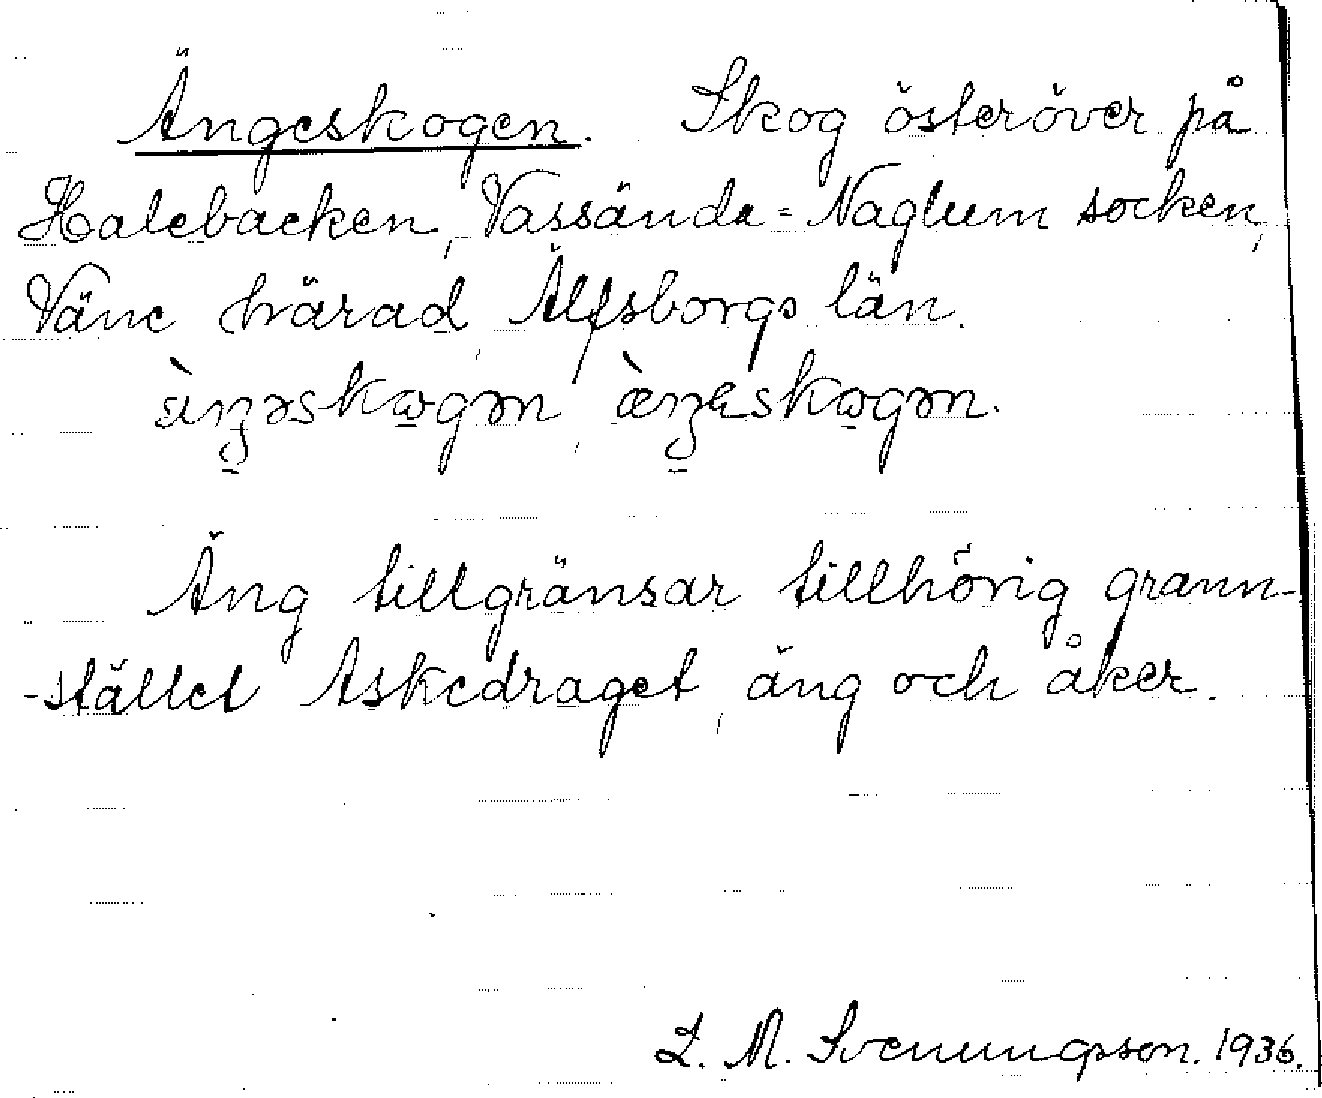 Ängeskogen. Skog österöver på
Halebacken, Vassända=Naglum socken,
Väne härad, Älfsborgs län.
Äng tillgränsar tillhörig grann-
-stället Askedraget, äng och åker.
L. M. Svenungsson. 1936.